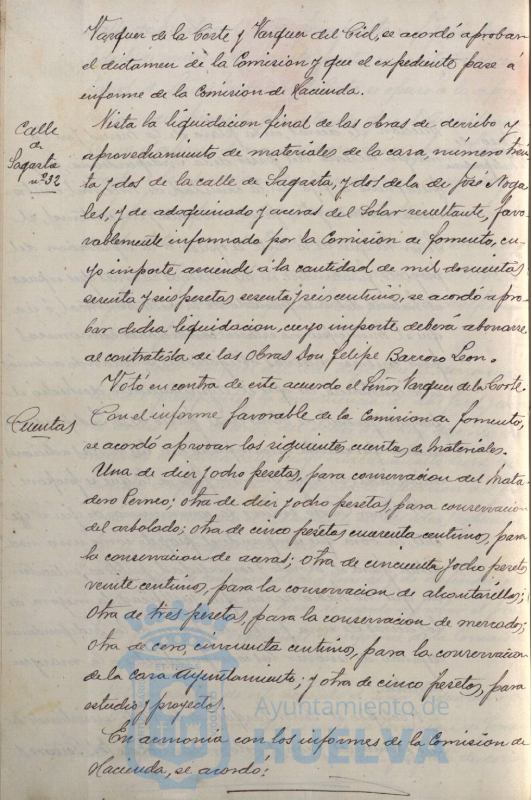 Vazquez de la Corte y Vazquez del Cid, se acordó aprobar
el dictamen de la Comision y que el expediente pase á
informe de la Comision de Hacienda.
Calle
de
Sagasta
nº 32
Vista la liquidacion final de las obras de derribo y
aprovechamiento de materiales de la casa, número trein
ta y dos de la calle de Sagasta, y dos de la de José Noga
les, y de adoquinado y aceras del Solar resultante, favo
rablemente informado por la Comision de fomento, cu
yo importe asciende á la cantidad de mil doscientas
sesenta y seis pesetas sesenta y seis centimos, se acordó apro
bar dicha liquidacion, cuyo importe deberá abonarse
al contratista de las Obras Don Felipe Barroso Leon.
Votó en contra de este acuerdo el Señor Vazquez de la Corte.
Cuentas
Con el informe favorable de la Comision de fomento,
se acordó aprobar las siguientes cuentas de Materiales.
Una de diez y ocho pesetas, para conservacion del Mata
dero Perneo; otra de diez y ocho pesetas, para conservacion
del arbolado; otra de cinco pesetas cuarenta centimos, para
la conservacion de aceras; otra de cincuenta y ocho pesetas
veinte centimos, para la conservacion de alcantarillas;
Otra de tres pesetas, para la conservacion de mercados;
otra de cero, cincuenta centimos, para la conservacion
de la casa Ayuntamiento; y otra de cinco pesetas, para
estudio y proyectos.
En armonia con los informes de la Comision de
Hacienda, se acordó:
Ayuntamiento de
HUELVA